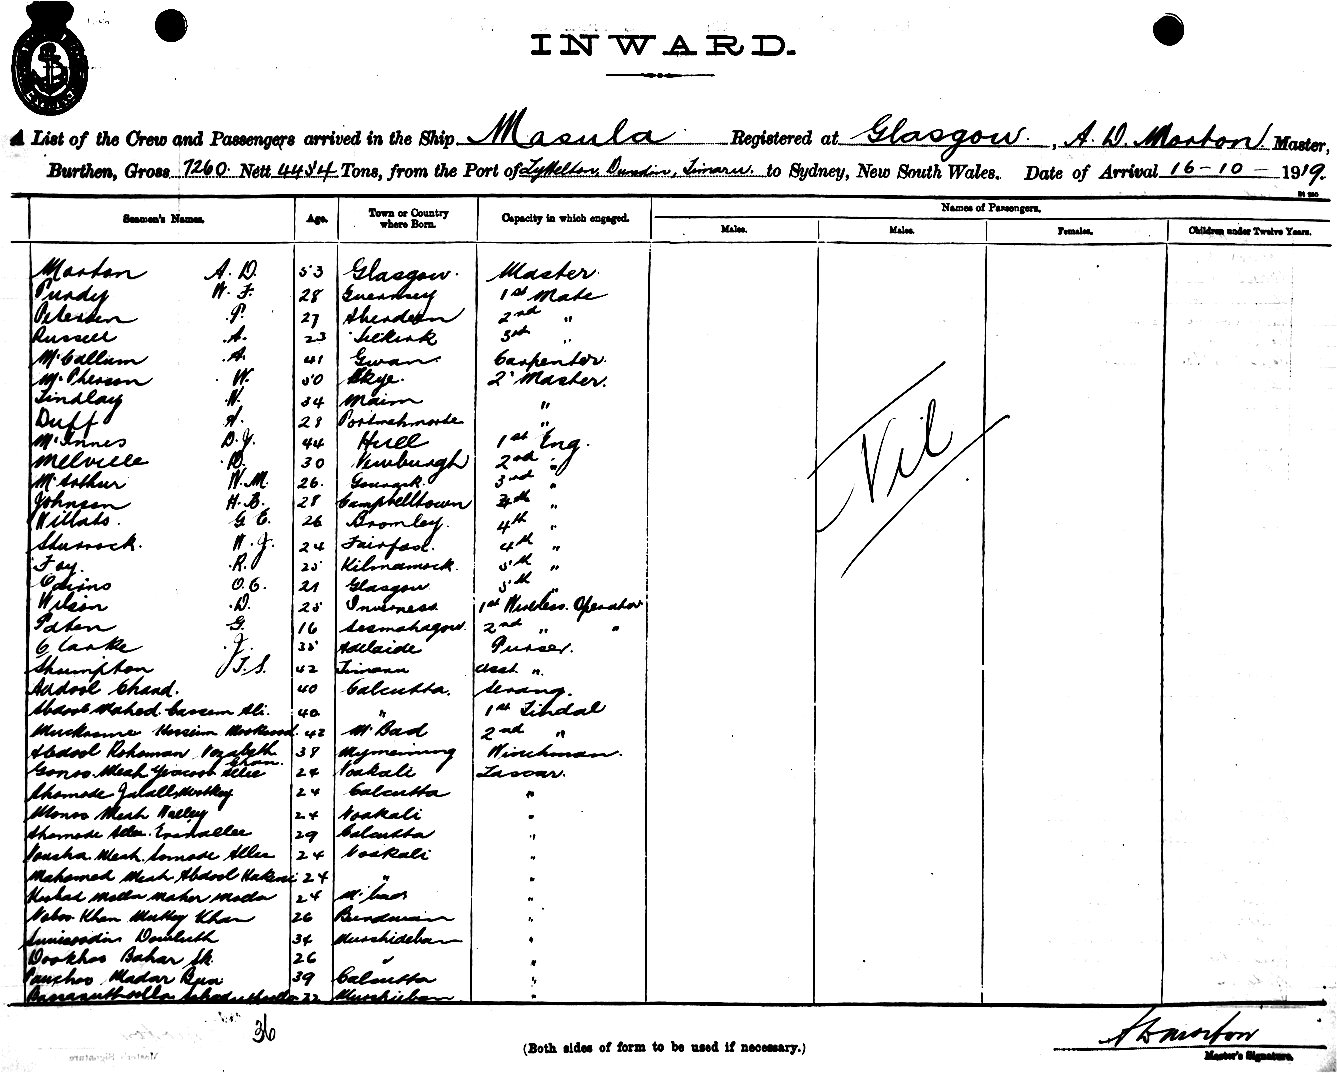 INWARD.
A List of the Crew and Passengers arrived in the Ship Masula Registered at Glasgow, A. D. Morton Master,
Burthen, Gross 7260 Nett 4484 Tons, from the Port of Lyttelton, Dunedin, Timaru to Sydney, New South Wales. Date of Arrival 16-10-1919.
Names of Passengers.
Seamen's Names. Age. Town or Country where Born. Capacity in which engaged. Males. Males. Females. Children under Twelve Years.
Morton A. D. 53 Glasgow. Master.
Purdy W. F. 28 Guernsey 1st Mate
Petersen P. 27 Aberdeen 2nd "
Russell A. 23 Selkirk 3rd "
McCallum A. 41 Carpenter.
McPherson W. 50 Skye.
Findlay 34
Duff A. 28 Portmahomack "
McInnes D. J. 44 Hull 1st Eng.
Melville D. 30 Newburgh 2nd "
McArthur W. M. 26. Gourock. 3rd "
Johnson H. B. 28 Campbelltown "
Willats. G. E. 26 Bromley. 4th "
Sturrock. W. J. 24 Fairfax. 4th "
Foy. R. 25 Kilmarnock. 5th "
Cairns O. C. 21 Glasgow 5th "
Wilson D. 25 Inverness 1st Wireless Operator
Paten G. 16 Lesmahagow. 2nd " "
Clarke J. 35 Adelaide Purser.
Shrimpton F. S. 42 Timaru Asst. ".
Abdool Chand. 40 Calcutta. Serang.
Abdool Wahed Cassem Ali. 40 " 1st Tindal
Hossein 42 M. Bad 2nd "
Abdool Rohoman 38 Mymensing Winchman.
Gonoo Meah Allie 24 Noakali Lascar.
24 Calcutta "
Monoo Meah 24 Noakali "
29 Calcutta "
Meah Allie 24 Noakali "
Mahomed Meah Abdool Hakim 24 " "
Molla Maher Molla 24 M. bad "
Naboo Khan Khan 26 Burdwan "
34 Murshidabad "
Dookhoo Bahar Sk. 26 " "
Madar Bux 39 Calcutta "
32 "
Nil
36
(Both sides of form to be used if necessary.)
A D Morton
Master's Signature.